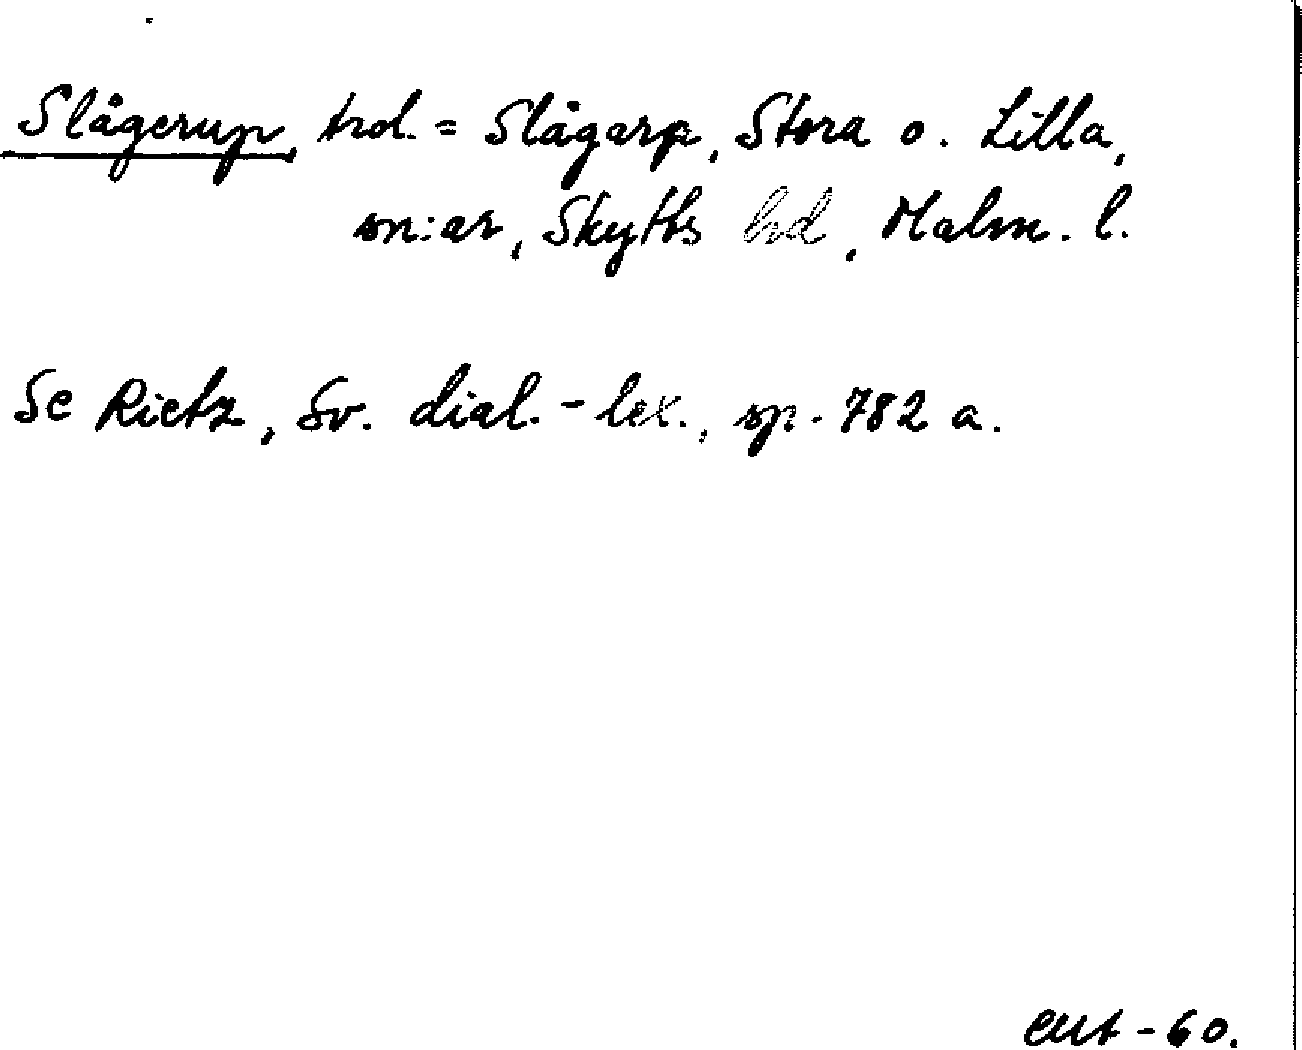 Slågerup, trol. = Slågarp, Stora o. Lilla,
sn:ar, Skytts hd, Malm. l.
Se Rietz, Sv. dial.-lex., sp. 782 a.
-60.